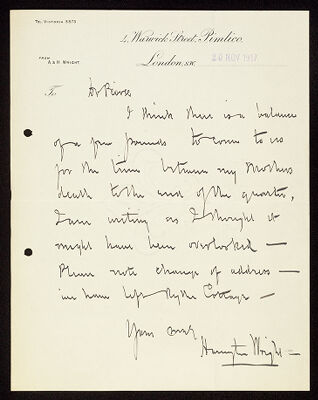 Tel. Victoria 5873
4, Warwick Street, Pimlico,
London, S.W. 20 NOV 1917
FROM
A & H. WRIGHT.
To Dr Rivers
I think there is a balance
of a few pounds to come to us
for the time between my Mothers
death to the end of the quarter,
I am writing as I thought it
might have been overlooked —
Please note change of address —
we have left Hythe Cottage —
Yours
Harrington Wright —